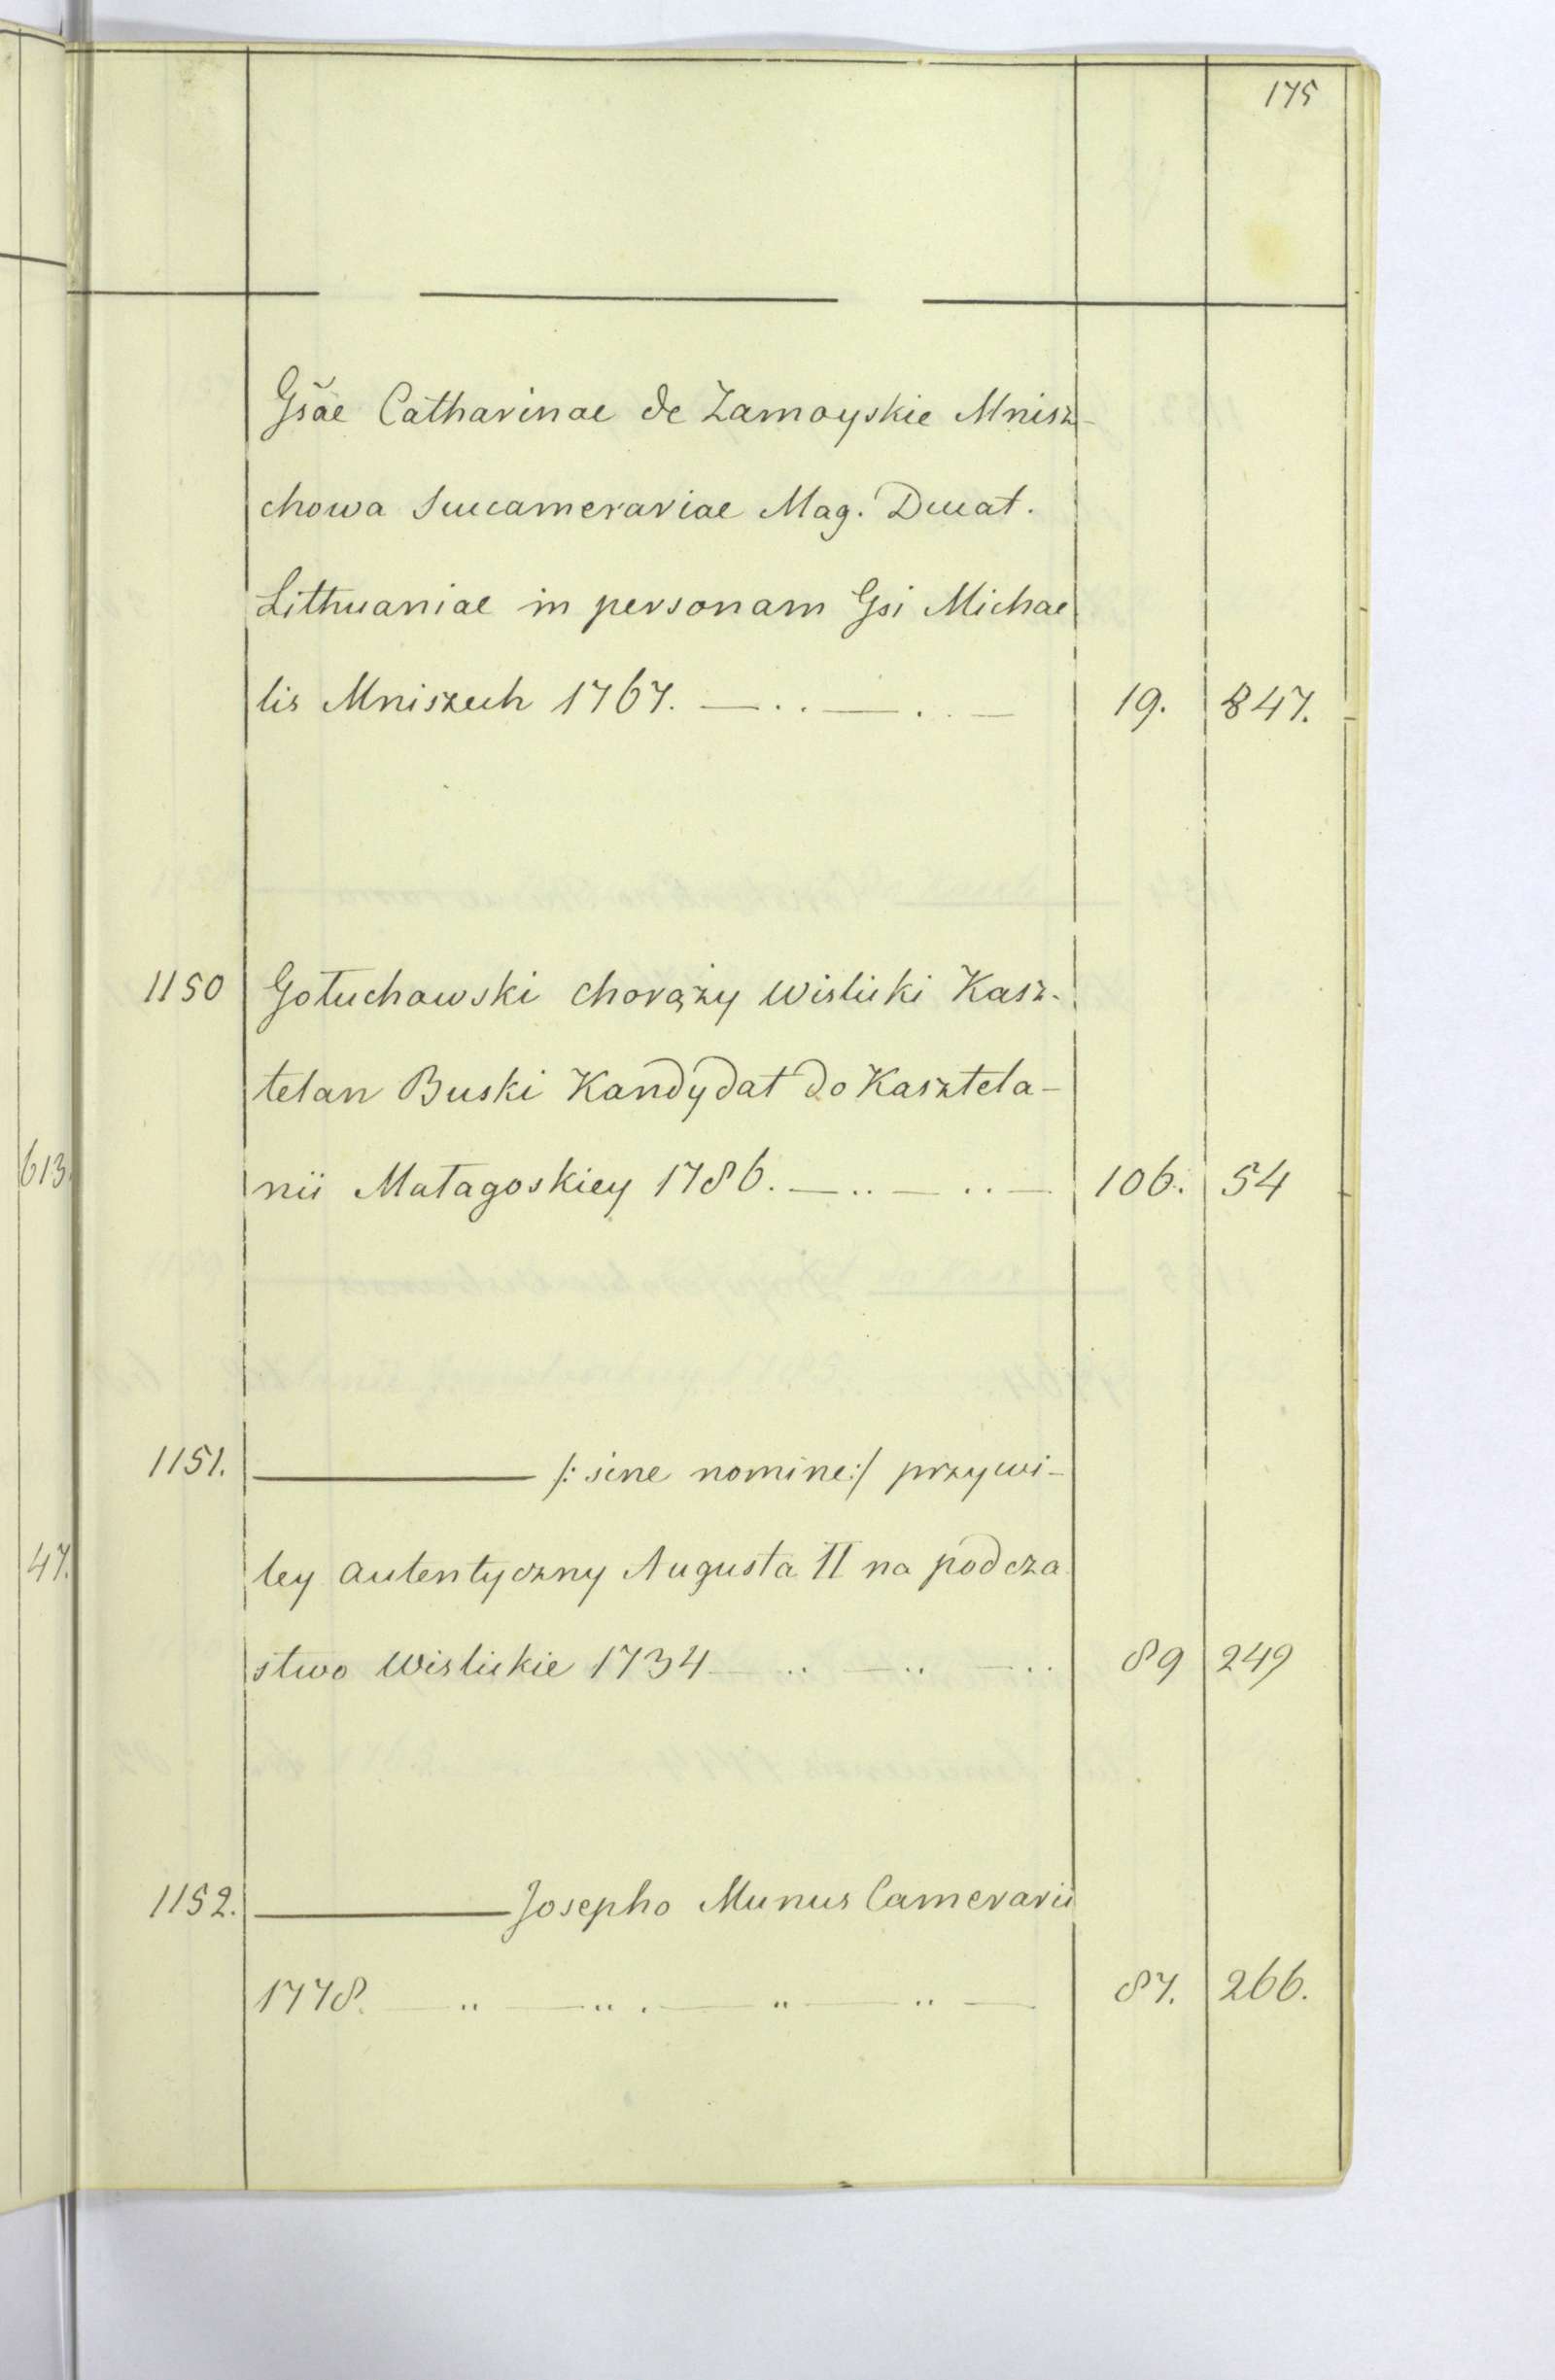 175
Gsae Catharinae de Zamoyskie Mnisz-
chowa Succamerariae Mag. Ducat.
Lithuaniae in personam Gsi Michae
lis Mniszech 1767. — .. — . . — 19. 847.
1150 Gołuchowski chorąży Wislicki Kasz-
telan Buski Kandydat do Kasztela-
613.
nii Małagoskiey 1786. — .. — .. — 106. 54
1151. ——— /: sine nomine :/ przywi-
47.
ley autentyczny Augusta II na podcza
stwo Wislickie 1734 — .. — .. — .. 89 249
1152. ——— Josepho Munus Camerarii
1778. — .. — .. . — .. — .. — 87. 266.